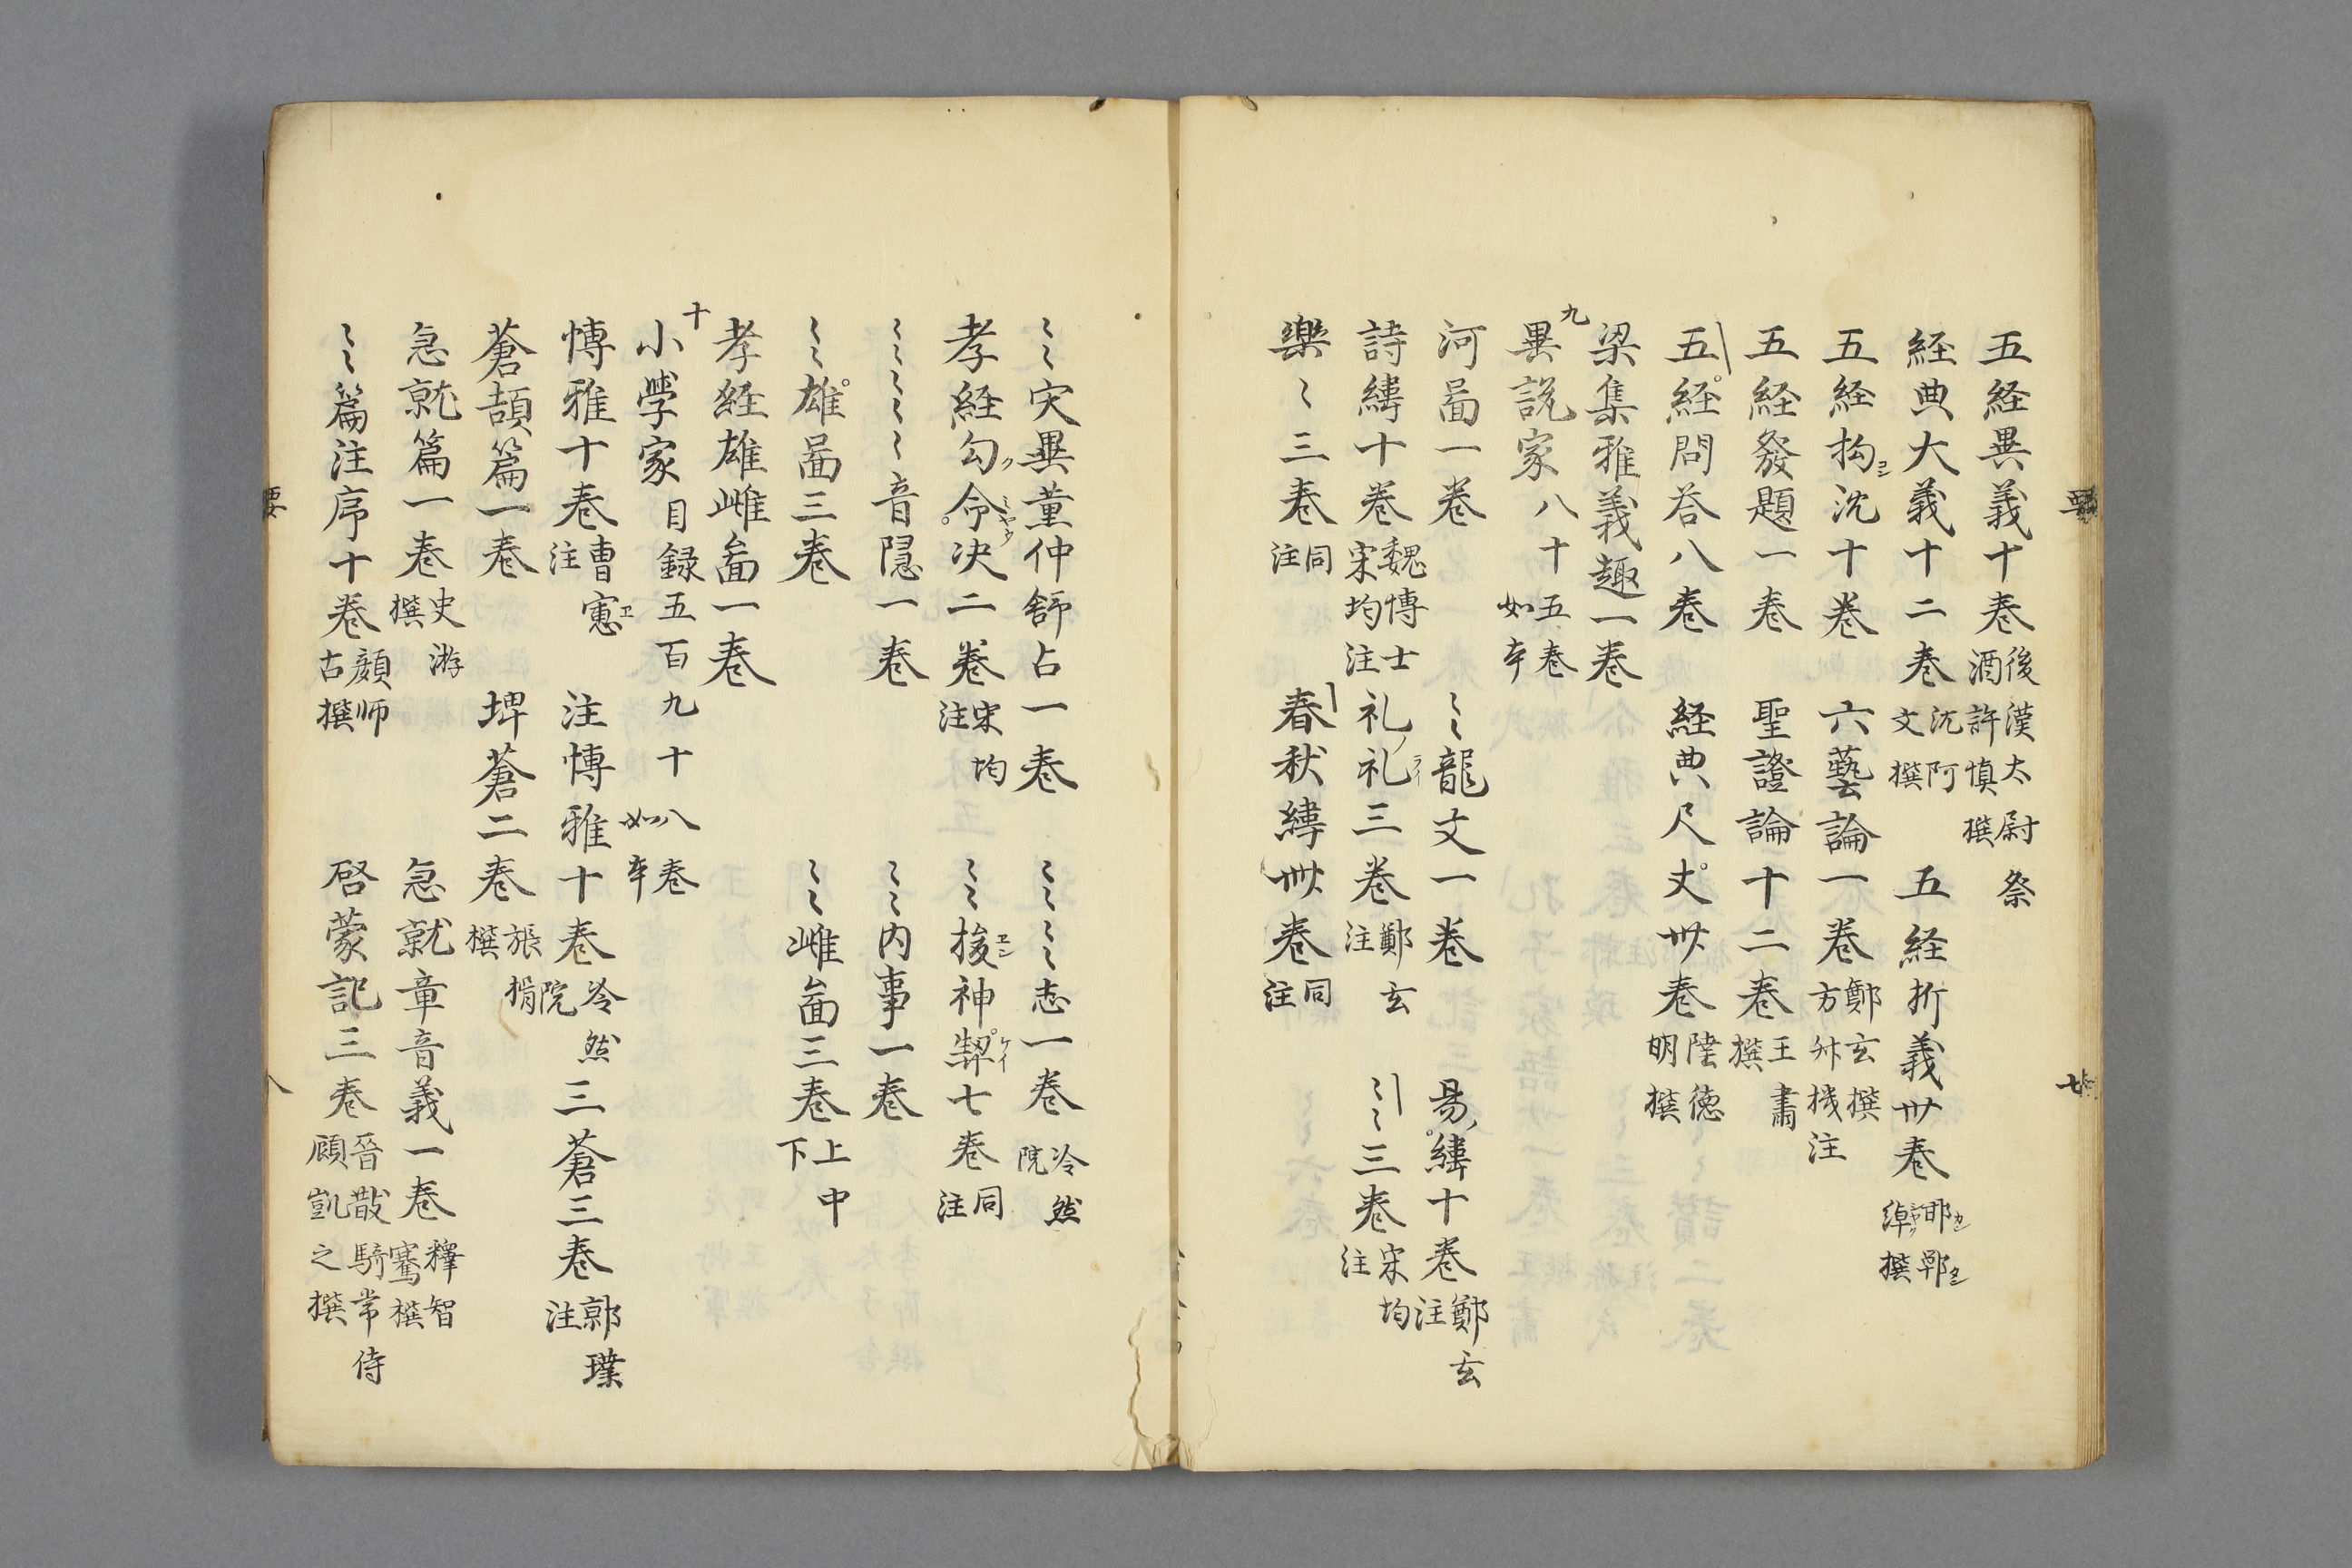 五経異義十巻 後漢太尉祭酒許慎撰
経典大義十二巻 沈阿文撰 五経析義卅巻 邯カン鄲タン綽シヤク撰
五経拘コシ沈十巻 六藝論一巻 鄭玄撰方舛機注
五経發題一巻 聖證論十二巻 王肅撰
五経問荅八巻 経典尺丈卅巻 陸徳明撰
梁集雅義趣一巻
九
異説家 八十五巻如本
河啚一巻 〻〻龍文一巻 易緯十巻 鄭玄注
詩緯十巻 魏博士宋均注 礼ノ礼ライ三巻 鄭玄注 〻〻三巻 宋均注
樂〻三巻 同注 春秋緯卌巻 同注
〻〻灾異董仲舒占一巻 〻〻〻〻志一巻 冷然院
孝経勾ク命ミヤウ决二巻 宋均注 〻〻援エン神契ケイ七巻 同注
〻〻〻〻〻音隠一巻 〻〻内事一巻
〻〻雄啚三巻 〻〻雌啚三巻 上中下
孝経雄雌啚一巻
十
小學家 目録五百九十八巻如本
博雅十巻 曹憲エ注 注博雅十巻 冷然院 三蒼三巻 郭璞注
蒼頡篇一巻 埤蒼二巻 張揖撰
急就篇一巻 史游撰 急就章音義一巻 釋智騫撰
〻〻篇注序十巻 顔师古撰 啓蒙記三巻 晉散騎常侍顧凱之撰